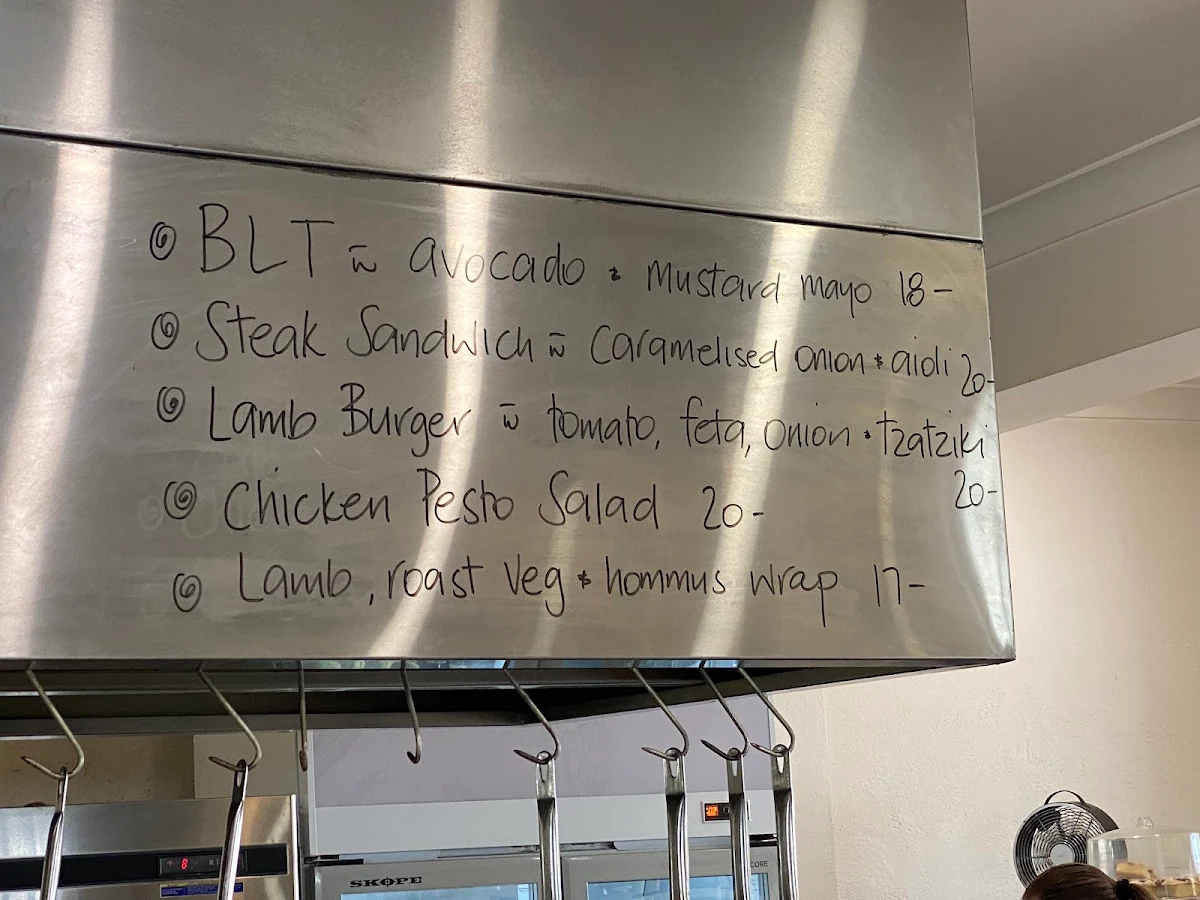 BLT w̄ avocado & Mustard mayo 18-
Steak Sandwich w̄ Caramelised onion & aioli 20-
Lamb Burger w̄ tomato, feta, onion & tzatziki
20-
Chicken Pesto Salad 20-
Lamb, roast veg & hommus wrap 17-
8
SKOPE
CORE